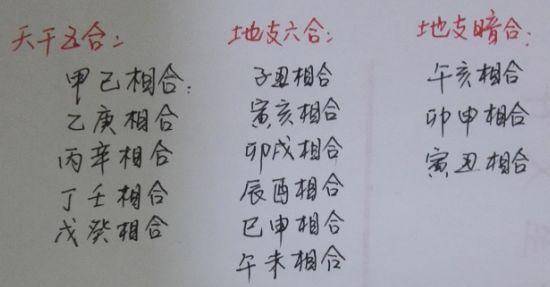 天干五合:
甲己相合:
乙庚相合
丙辛相合
丁壬相合
戊癸相合
地支六合:
子丑相合
寅亥相合
卯戌相合
辰酉相合
巳申相合
午未相合
地支暗合:
午亥相合
卯申相合
寅丑相合